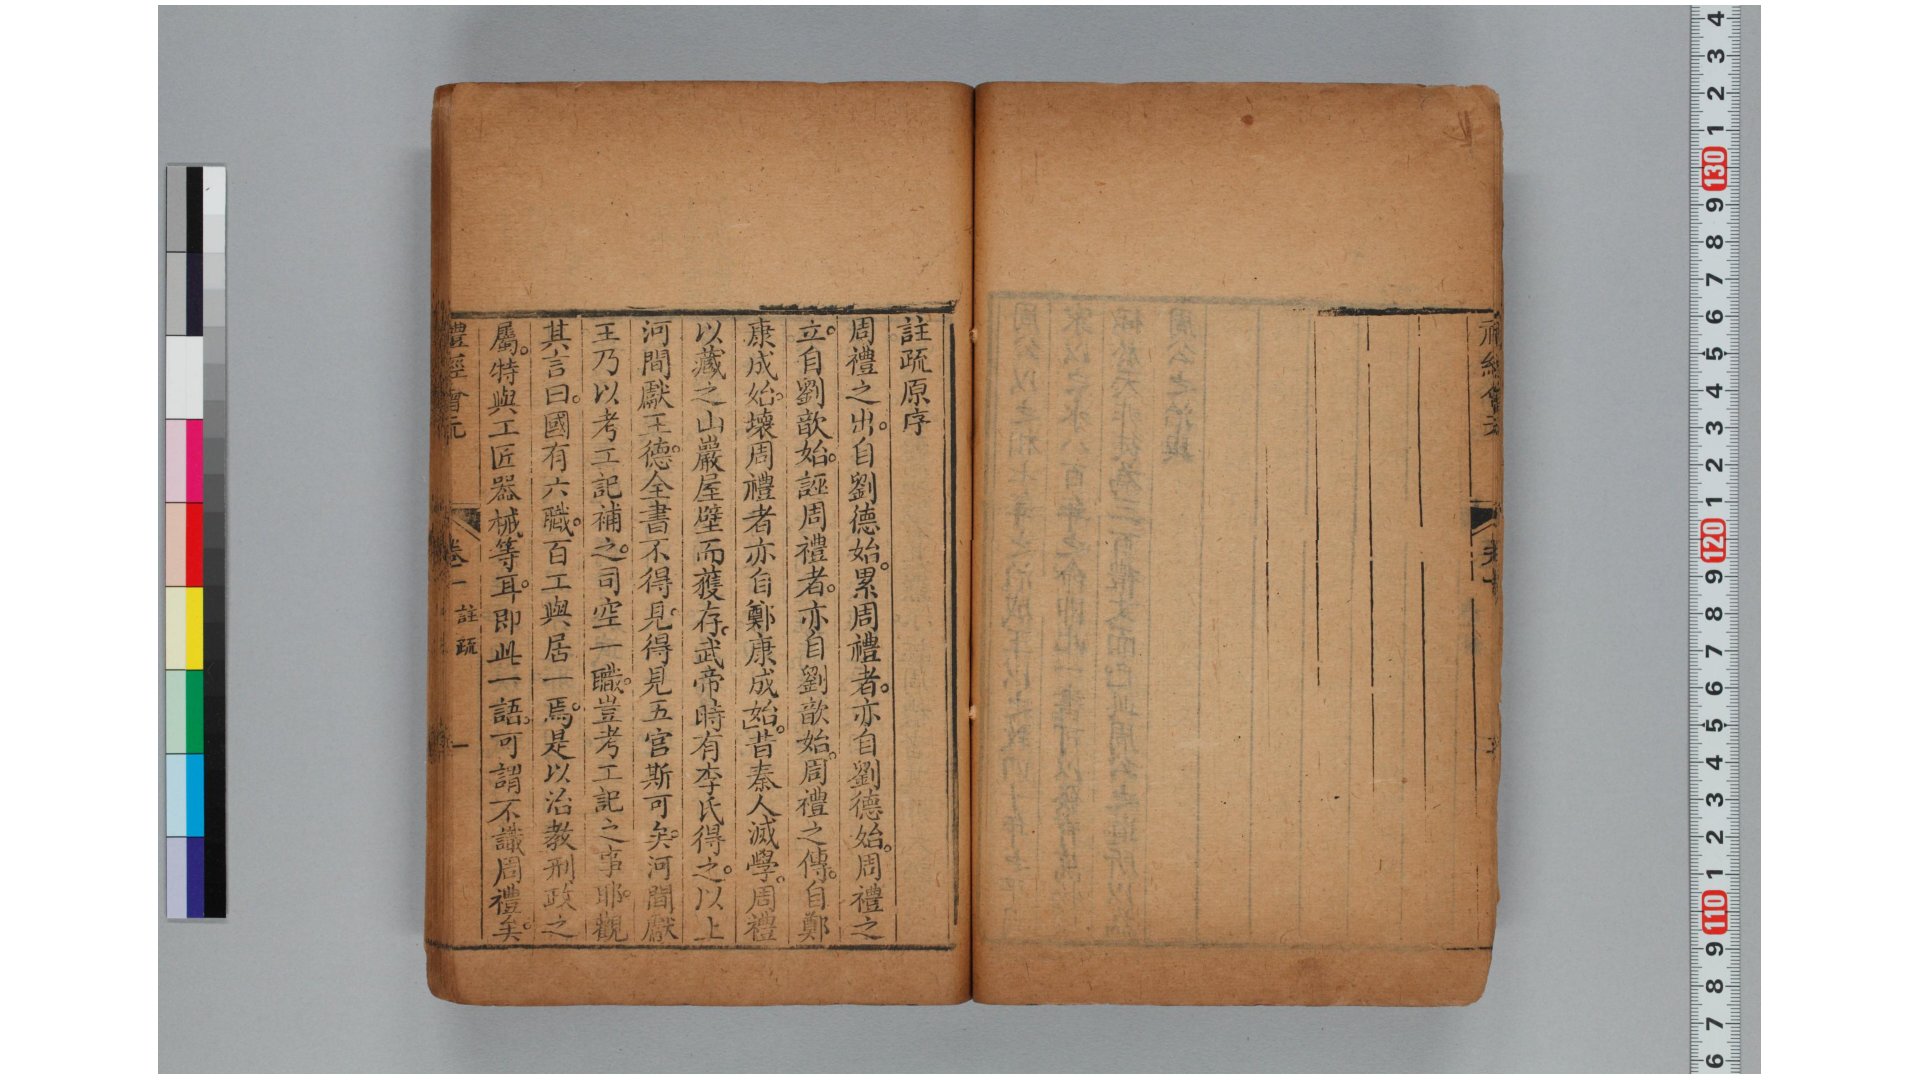 註疏原序
周禮之出自劉德始累周禮者亦自劉德始周禮之
立自劉歆始誣周禮者亦自劉歆始周禮之傳自鄭
康成始壞周禮者亦自鄭康成始昔秦人滅學周禮
以藏之山巖屋壁而獲存武帝時有李氏得之以上
河間獻王德全書不得見得見五官斯可矣河間獻
王乃以考工記補之司空一職豈考工記之事耶觀
其言曰國有六職百工與居一焉是以治教刑政之
屬特與工匠器械等耳即此一語可謂不識周禮矣
禮經會元
卷一
註疏
一
4
3
2
1
130
9
8
7
6
5
4
3
2
1
120
9
8
7
6
5
4
3
2
1
110
9
8
7
6